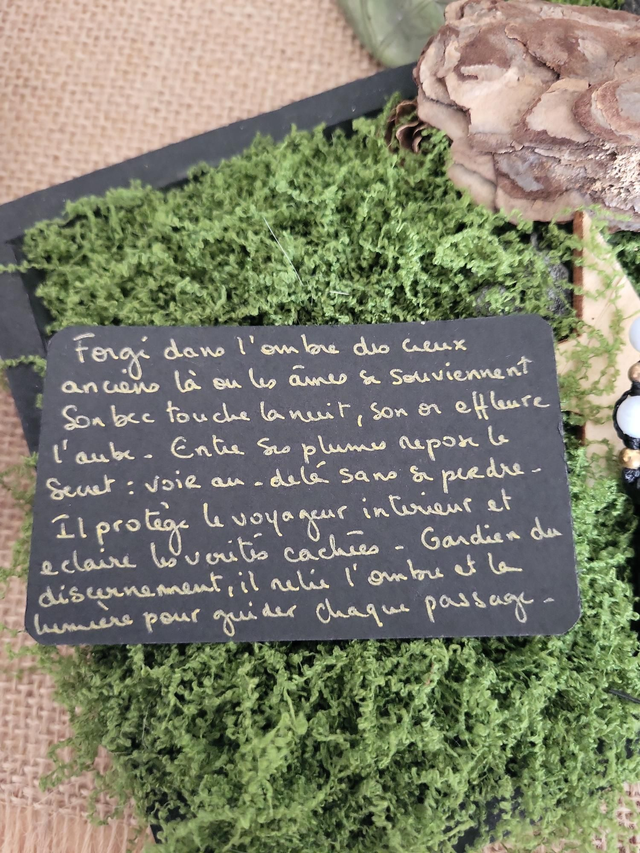 Forgé dans l'ombre des cieux
anciens là ou les âmes se souviennent
Son bec touche la nuit, son or effleure
l'aube. Entre ses plumes repose le
Secret : voir au-delà sans se perdre.
Il protège le voyageur interieur et
eclaire les verités cachées. Gardien du
discernement, il relie l'ombre et la
lumière pour guider chaque passage.